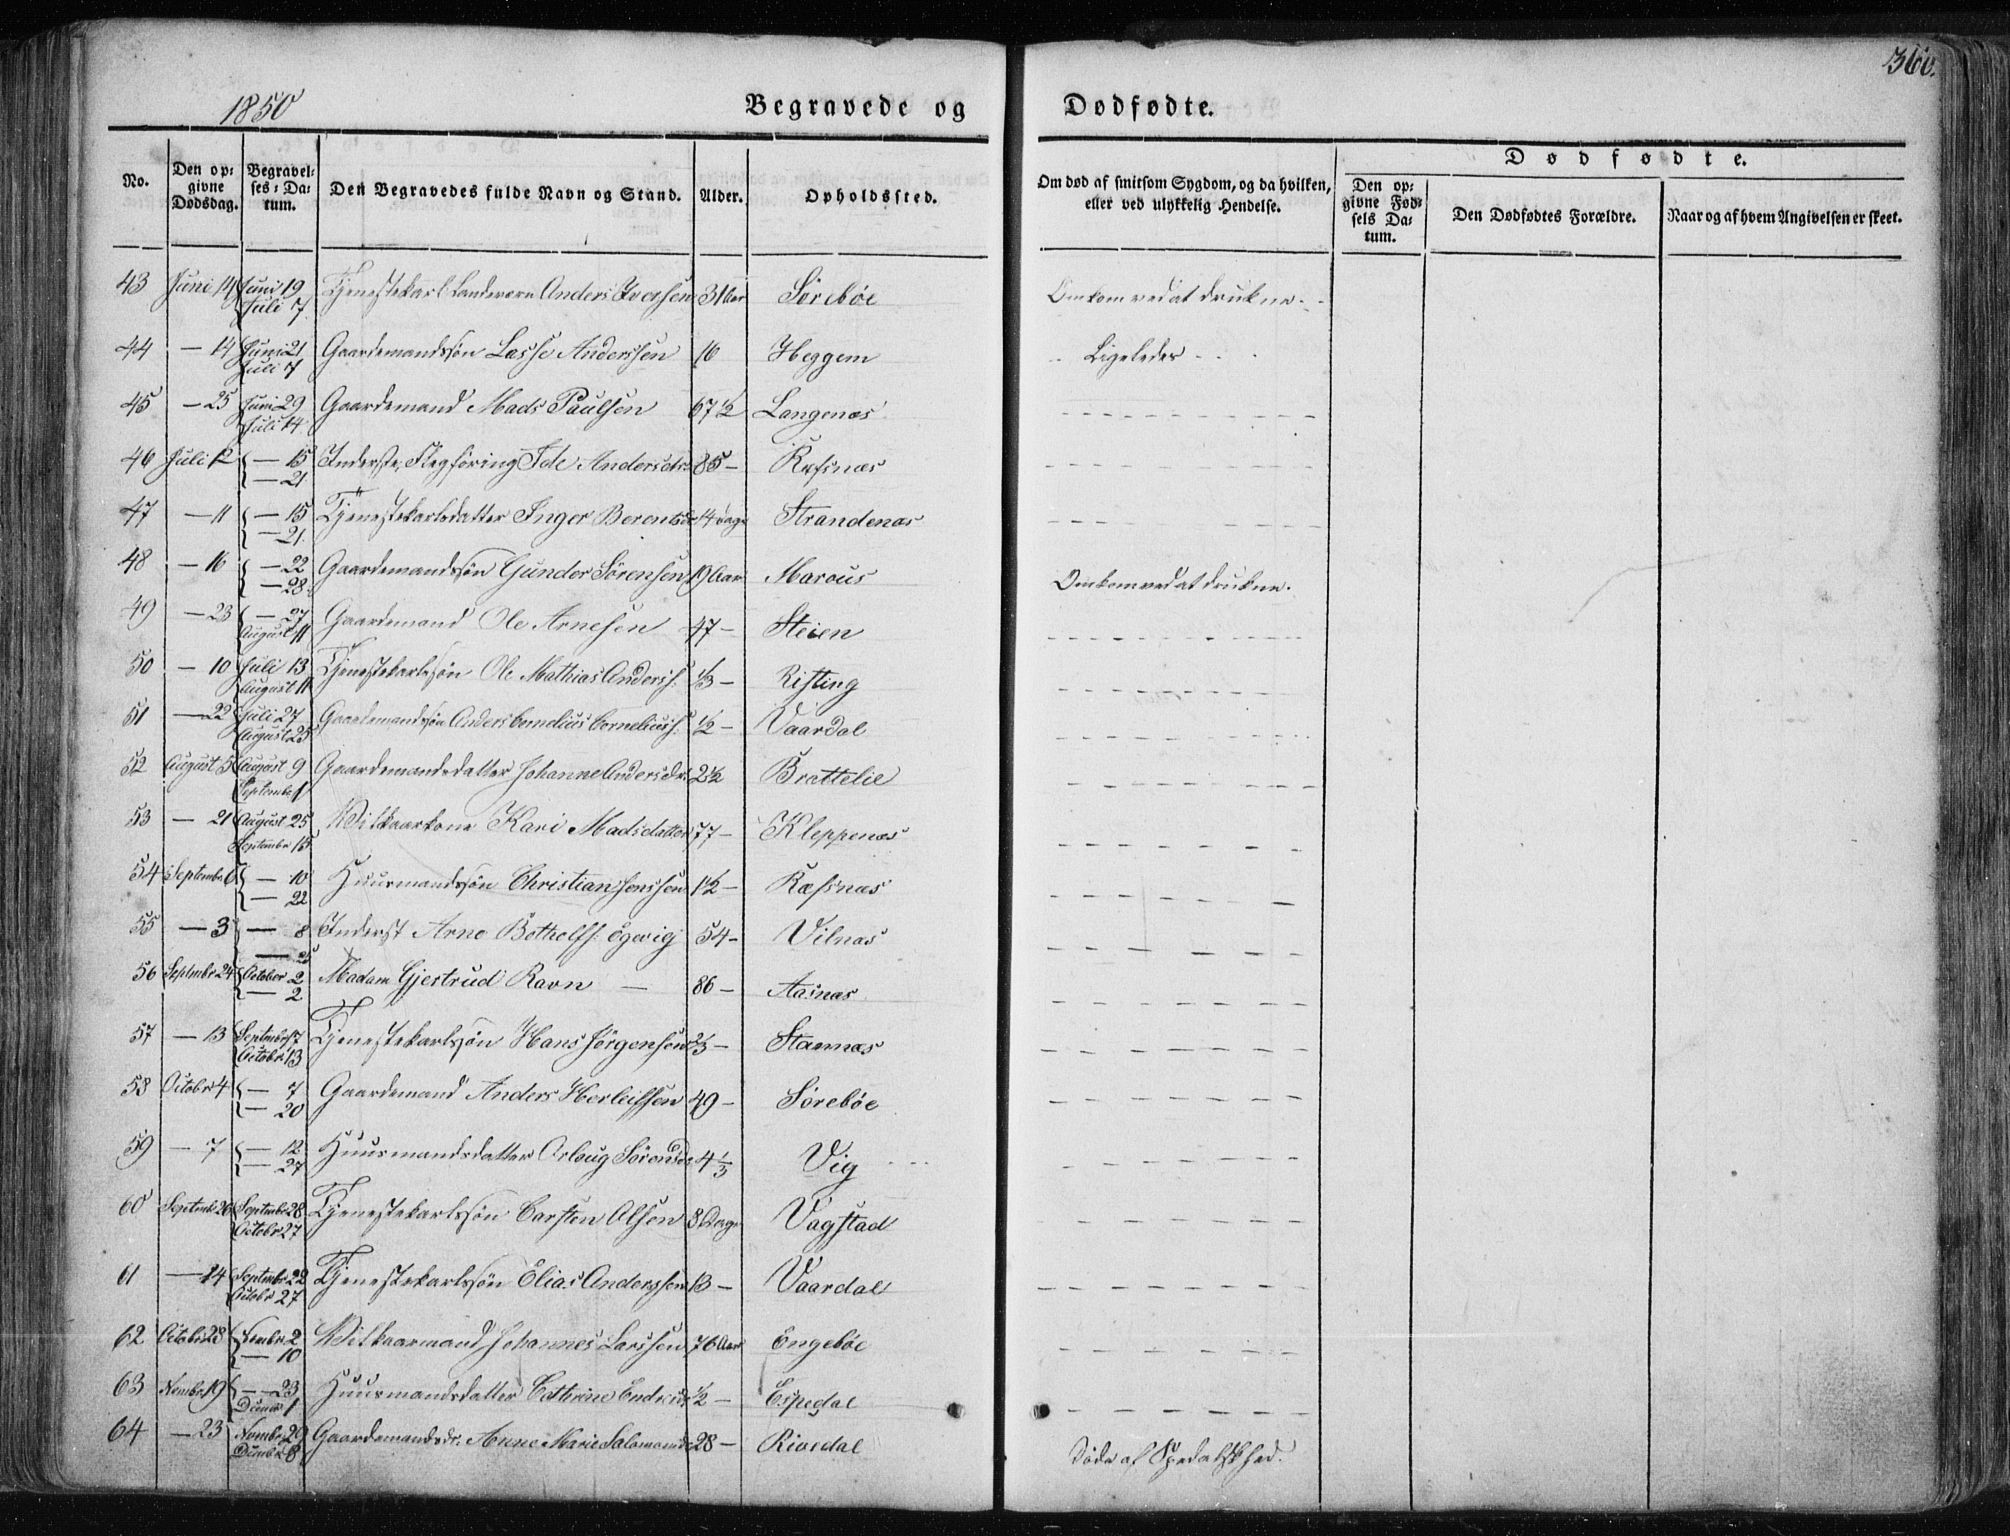 360.
1850 Begravede og Dødfødte.
No. Den op- givne Dødsdag. Begravel- ses-Da- tum. Den Begravedes fulde Navn og Stand. Alder. Opholdssted. Om død af smitsom Sygdom, og da hvilken, eller ved ulykkelig Hendelse. Dødfødte. Den op- givne Fød- sels Da- tum. Den Dødfødtes Forældre. Naar og af hvem Angivelsen er skeet.
43 Juni 14 Juni 19 Juli 7 Tjenestekarl Landevern Anders Iversen 31 Aar Sørebøe Omkom ved at drukne.
44 — 14 Juni 21 Juli 7 Gaardemandssøn Lasse Anderssen 16 Heggem Ligeledes
45 — 25 Juni 29 Juli 14 Gaardemand Mads Paulsen 67 1/2 Langenæs
46 Juli 12 — 15 — 21 Inderste, Flegføring Ide Andersdtr 85 — Refsnæs
47 — 11 — 15 — 21 Tjenestekarlsdatter Inger Berentsdr 14 Dage Strandenæs
48 — 16 — 22 — 28 Gaardemandssøn Gunder Sørensen 19 Aar Marous Omkom ved at drukne.
49 — 23 — 27 August 11 Gaardemand Ole Arnesen 47 — Steien
50 — 10 Juli 13 August 11 Tjenestekarlssøn Ole Mathias Anders: 1/3 — Risting
51 — 22 Juli 27 August 25 Gaardemandssøn Anders Cornelius Cornelius: 1/2 — Vaardal
52 August 5 August 9 September 1 Gaardemandsdatter Johanne Andersdr. 2 1/2 Brattelie
53 — 21 August 25 Septembr 15 Vilkaarkone Kari Madsdatter 77 — Kleppenæs
54 Septembr 6 — 10 — 22 Huusmandssøn Christian Jenssen 1 1/2 — Ræfsnæs
55 — 3 — 8 Inderst Arne Botholfs: Egevig 54 — Vilnæs
56 Septembr 24 October 2 — 2 Madam Gjertrud Ravn — 86 — Aasnæs
57 — 13 Septembr 17 Octobr 13 Tjenestekarlssøn Hans Jørgensen 2/3 — Stannæs
58 Octobr 4 — 7 — 20 Gaardemand Anders Herleifsen 49 — Sørebøe
59 — 7 — 12 — 27 Huusmandsdatter Orlaug Sørensdr 4 1/3 Vig
60 Septembr 20 Septembr 28 Octobr 27 Tjenestekarlssøn Carsten Olsen 8 Dage Vagstad
61 — 14 Septembr 22 Octobr 27 Tjenestekarlssøn Elias Anderssen 13 — Vaardal
62 Octobr 28 Nvembr 2 — 10 Vilkaarmand Johannes Larssen 76 Aar Engebøe
63 Nvembr 19 — 23 Dcembr 1 Huusmandsdatter Cathrine Endresdr 1/2 — Espedal
64 — 23 Novembr 29 Dcembr 8 Gaardemandsdr: Anne Marie Salomonsdr 28 — Rivedal Døde af Spedalskhed.